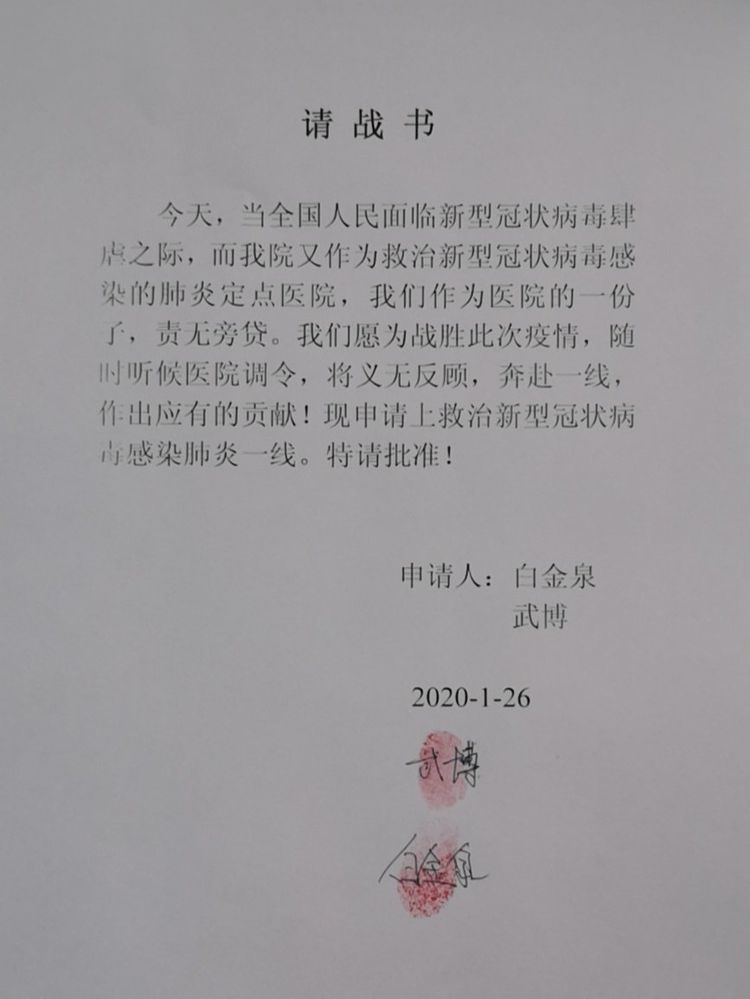 请战书
今天，当全国人民面临新型冠状病毒肆
虐之际，而我院又作为救治新型冠状病毒感
染的肺炎定点医院，我们作为医院的一份
子，责无旁贷。我们愿为战胜此次疫情，随
时听候医院调令，将义无反顾，奔赴一线，
作出应有的贡献！现申请上救治新型冠状病
毒感染肺炎一线。特请批准！
申请人：白金泉
武博
2020-1-26
武博
白金泉